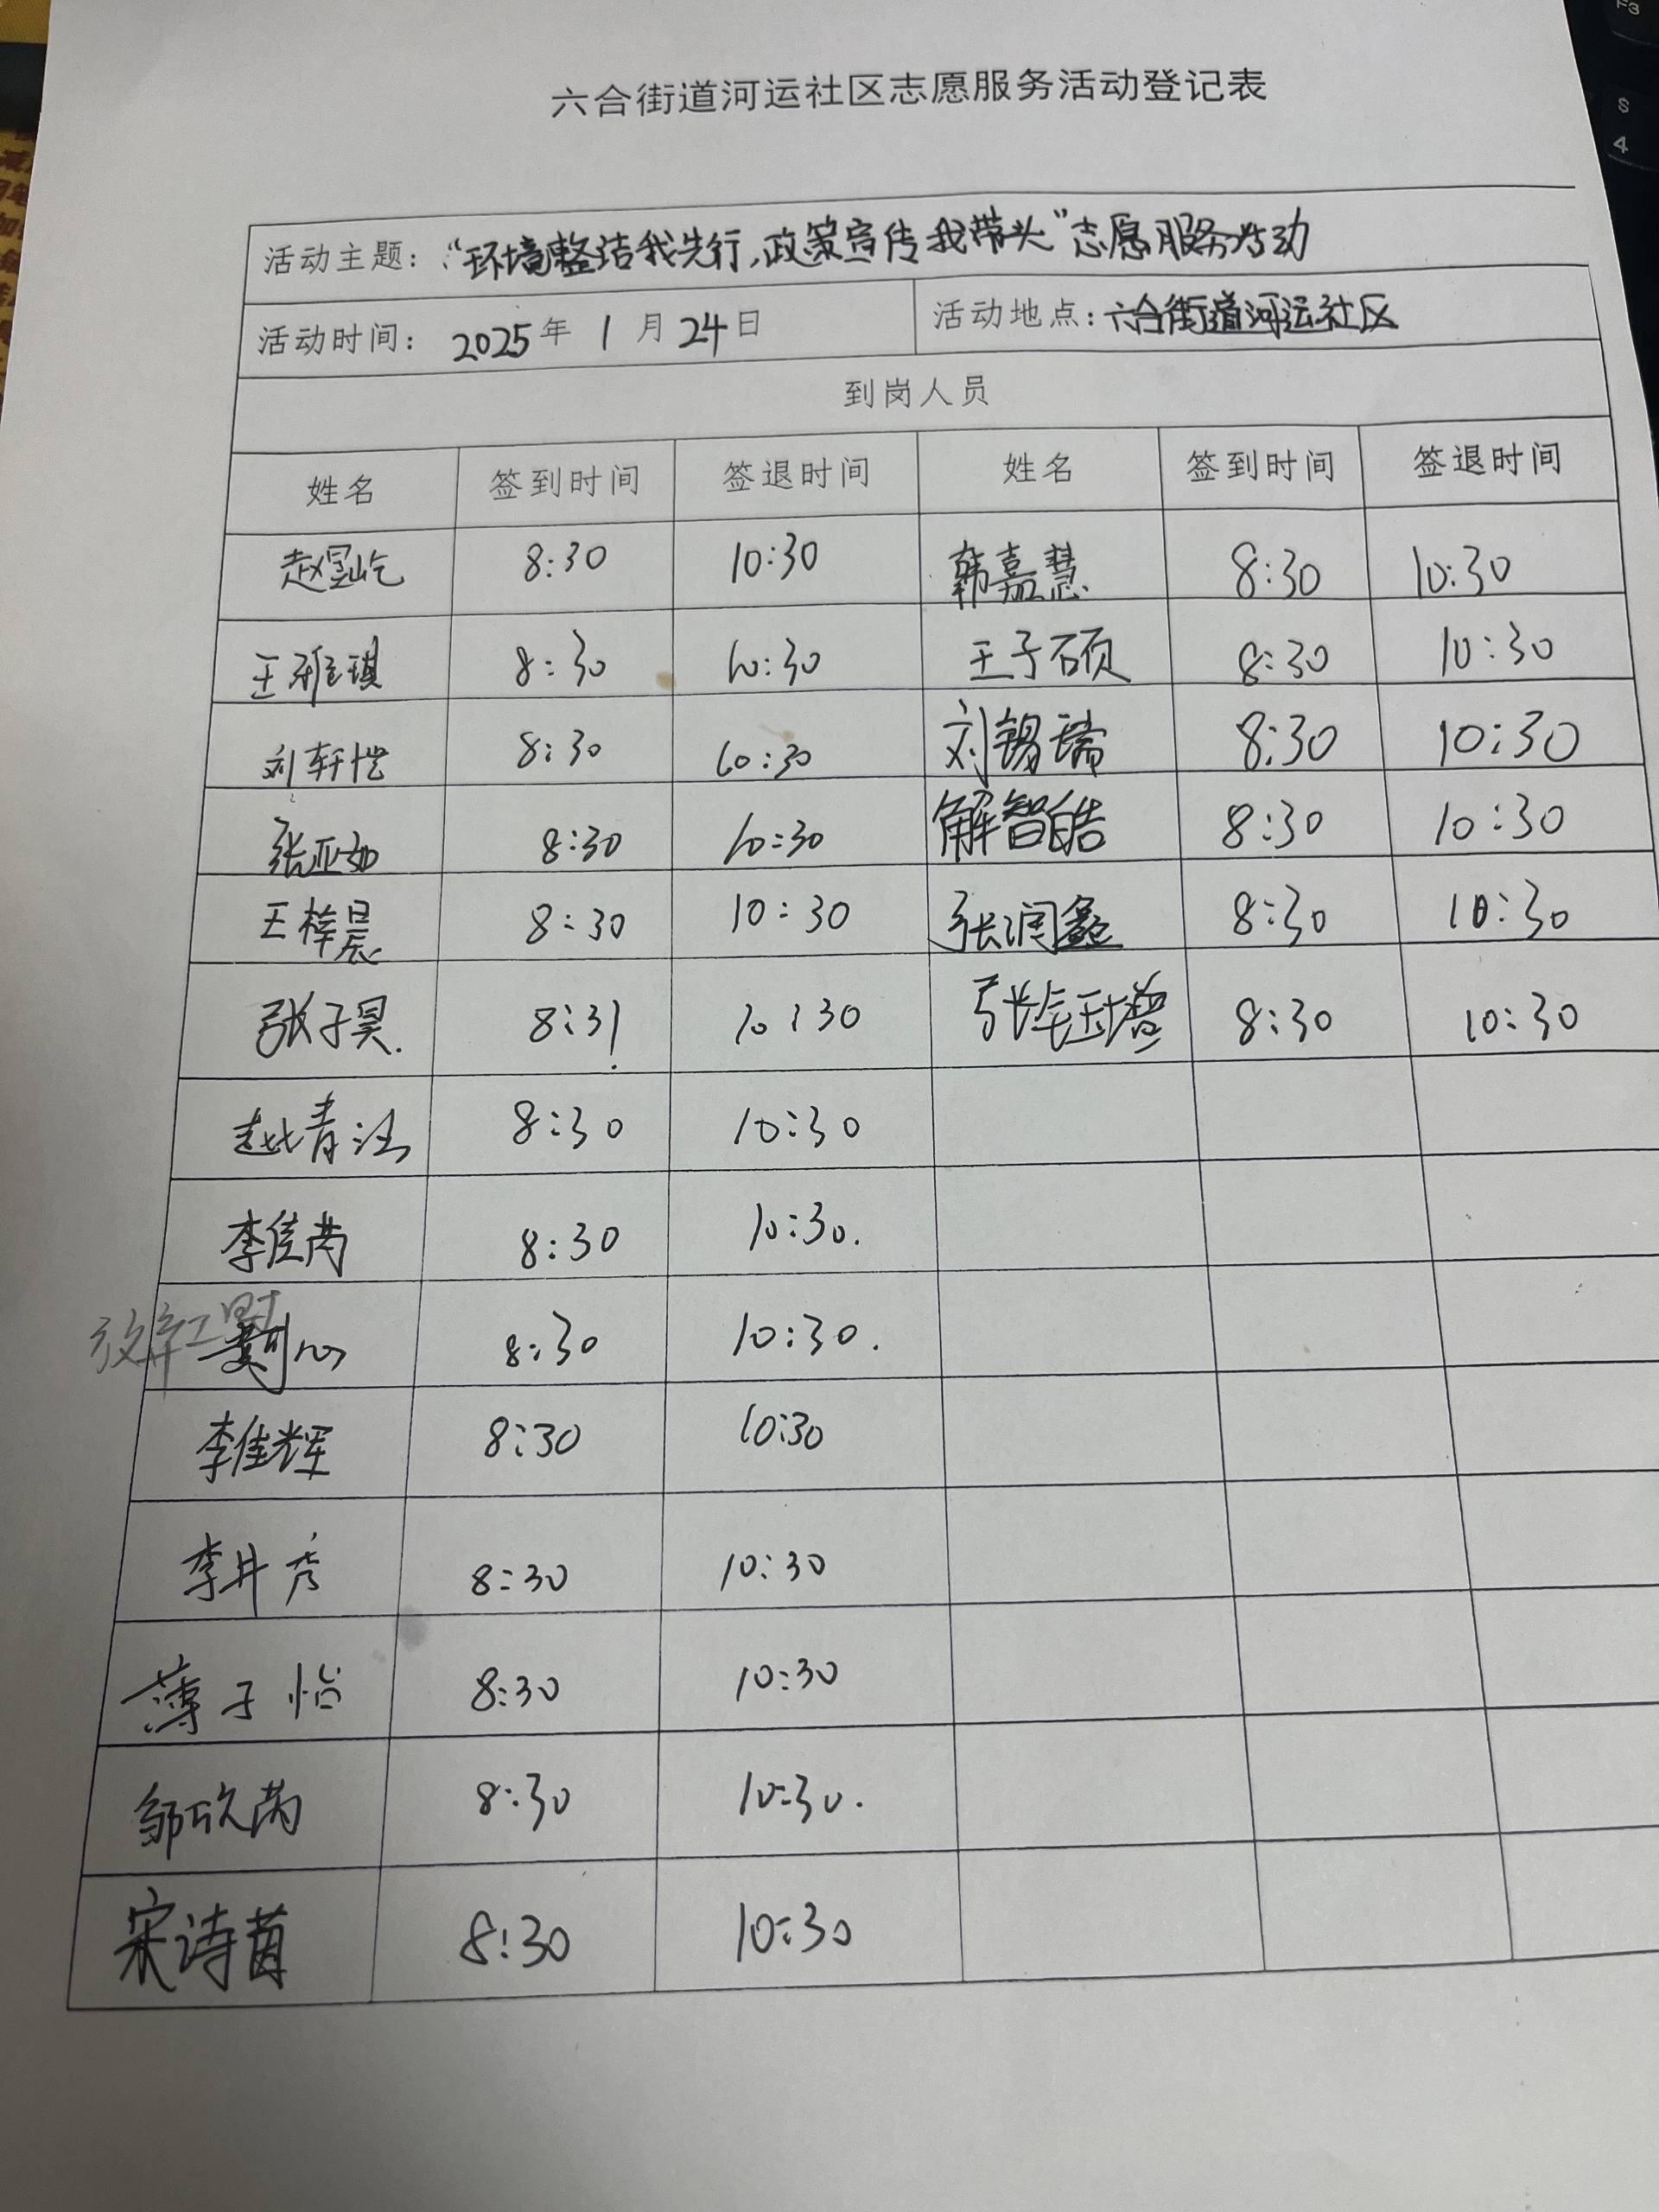 六合街道河运社区志愿服务活动登记表
活动主题：“环境整洁我先行,政策宣传我带头”志愿服务活动
活动时间： 2025年 1 月 24日 活动地点：六合街道河运社区
到岗人员
姓名 签到时间 签退时间 姓名 签到时间 签退时间
赵昱屹 8:30 10:30 韩嘉慧 8:30 10:30
王雅琪 8:30 10:30 王子硕 8:30 10:30
刘轩恺 8:30 10:30 刘锡瑞 8:30 10:30
张亚如 8:30 10:30 解智皓 8:30 10:30
王梓晨 8:30 10:30 张润鑫 8:30 10:30
张子昊. 8:31 10:30 张 8:30 10:30
赵青 8:30 10:30
李佳芮 8:30 10:30.
放弃工时 8:30 10:30.
李佳辉 8:30 10:30
李井秀 8:30 10:30
薄子怡 8:30 10:30
邹欣芮 8:30 10:30.
宋诗茵 8:30 10:30
F3
$
4